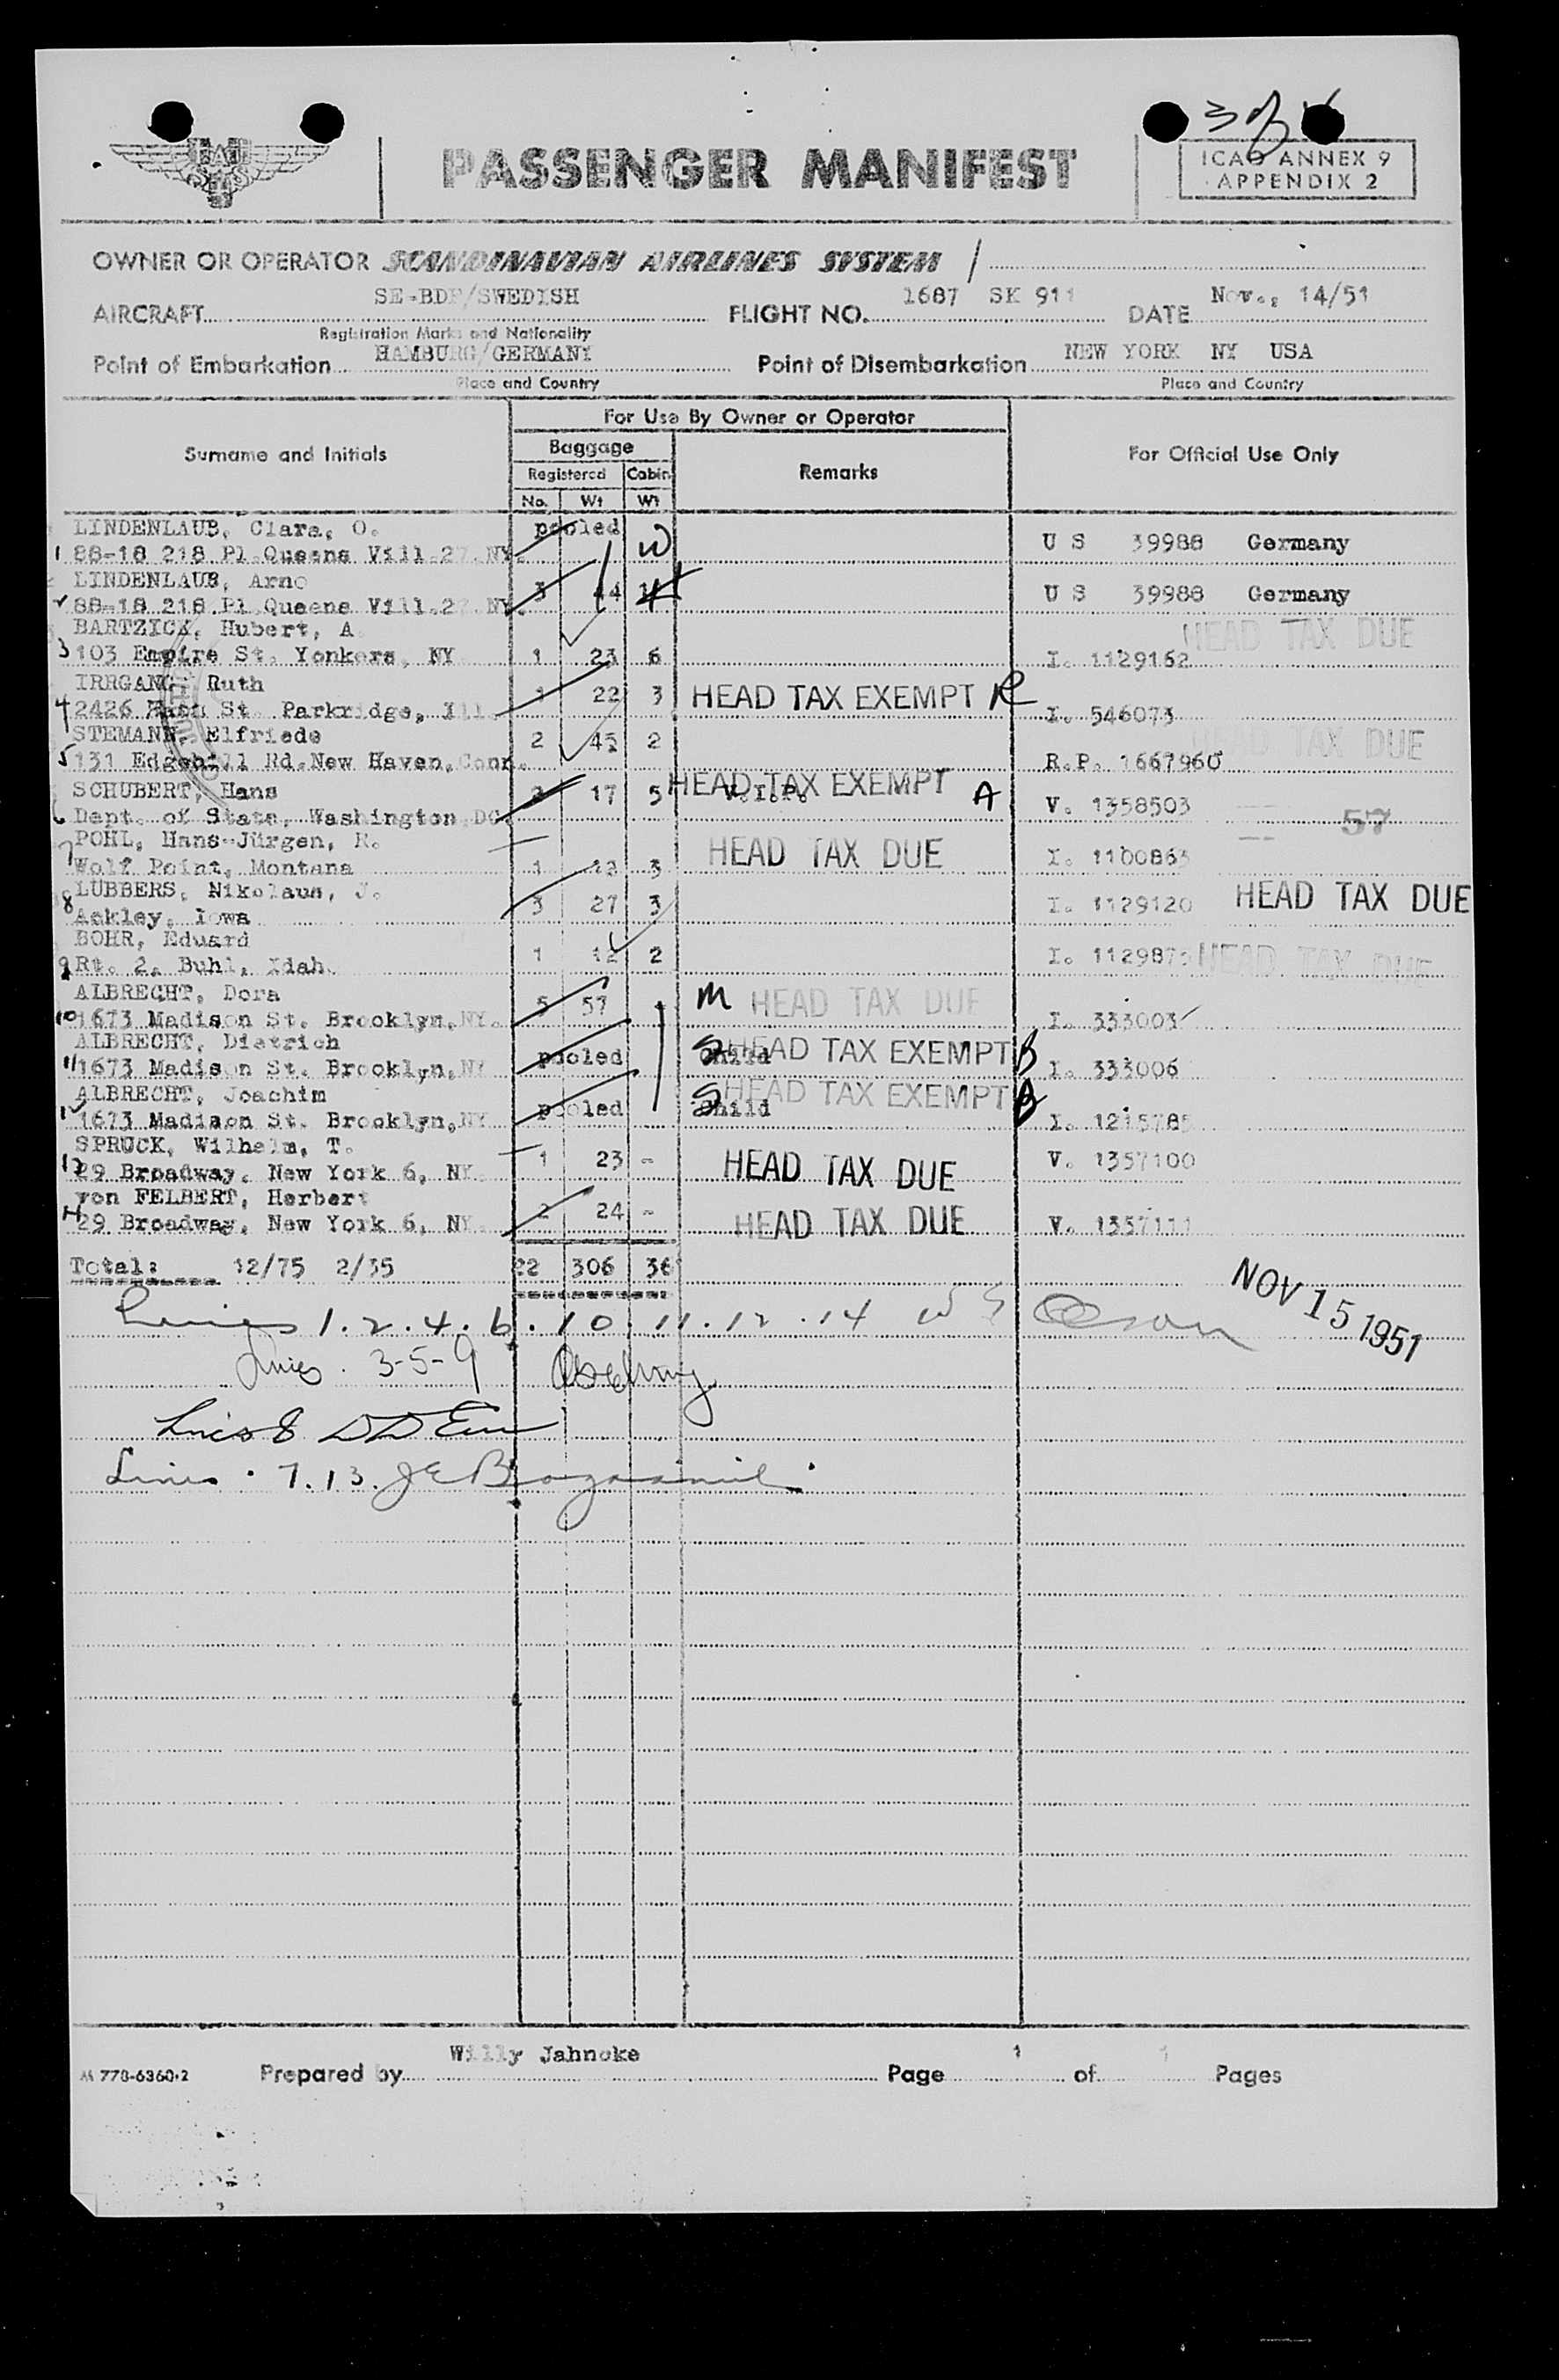 3 of
PASSENGER MANIFEST
ICAO ANNEX 9
APPENDIX 2
OWNER OR OPERATOR SCANDINAVIAN AIRLINES SYSTEM /
AIRCRAFT SE-BDP/SWEDISH FLIGHT NO. 1687 SK 911 DATE Nov., 14/51
Registration Marks and Nationality
Point of Embarkation HAMBURG/GERMANY Point of Disembarkation NEW YORK NY USA
Place and Country Place and Country
For Use By Owner or Operator
Surname and Initials Baggage Remarks For Official Use Only
Registered Cabin
No. Wt Wt
LINDENLAUB, Clara, O. pooled W
1 88-18 218.Pl.Queens Vill.27.NY. U S 39988 Germany
LINDENLAUB, Arno 3 44
2 88-18 218.Pl.Queens Vill.27.NY. U S 39988 Germany
BARTZICK, Hubert, A. HEAD TAX DUE
3 103 Empire St. Yonkers, NY 1 23 6 I. 1129162
IRRGANG, Ruth 1 22 3 HEAD TAX EXEMPT R
4 2426 St. Parkridge, Ill. I. 546073
STEMANN, Elfriede 2 45 2 HEAD TAX DUE
5 131 Edgehill Rd.New Haven,Conn. R.P. 1667960
SCHUBERT, Hans 2 17 5 HEAD TAX EXEMPT V.I.P. A V. 1358503
6 Dept. of State, Washington,DC. 57
POHL, Hans-Jürgen, R. HEAD TAX DUE
7 Wolf Point, Montana 1 12 3 I. 1100863
LUBBERS, Nikolaus, J. 3 27 3 I. 1129120 HEAD TAX DUE
8 Ackley, Iowa
BOHR, Eduard 1 12 2 I. 1129873 HEAD TAX DUE
9 Rt. 2, Buhl, Idah.
ALBRECHT, Dora 5 57 - M HEAD TAX DUE
10 1673 Madison St. Brooklyn,NY. I. 333003
ALBRECHT, Dietrich pooled Child S HEAD TAX EXEMPT B
11 1673 Madison St. Brooklyn,NY I. 333006
ALBRECHT, Joachim pooled Child S HEAD TAX EXEMPT B
12 1673 Madison St. Brooklyn,NY I. 1215785
SPRUCK, Wilhelm, T. 1 23 - HEAD TAX DUE V. 1357100
13 29 Broadway, New York 6, NY.
von FELBERT, Herbert 2 24 - HEAD TAX DUE
14 29 Broadway, New York 6, NY. V. 1357111
Total: 12/75 2/35 22 306 36
NOV 15 1951
Lines 1.2.4.6.10.11.12.14 Olson
Lines. 3-5-9
Lines 8
Lines. 7.13.
M 778-6360-2 Prepared by Willy Jahncke Page 1 of 1 Pages